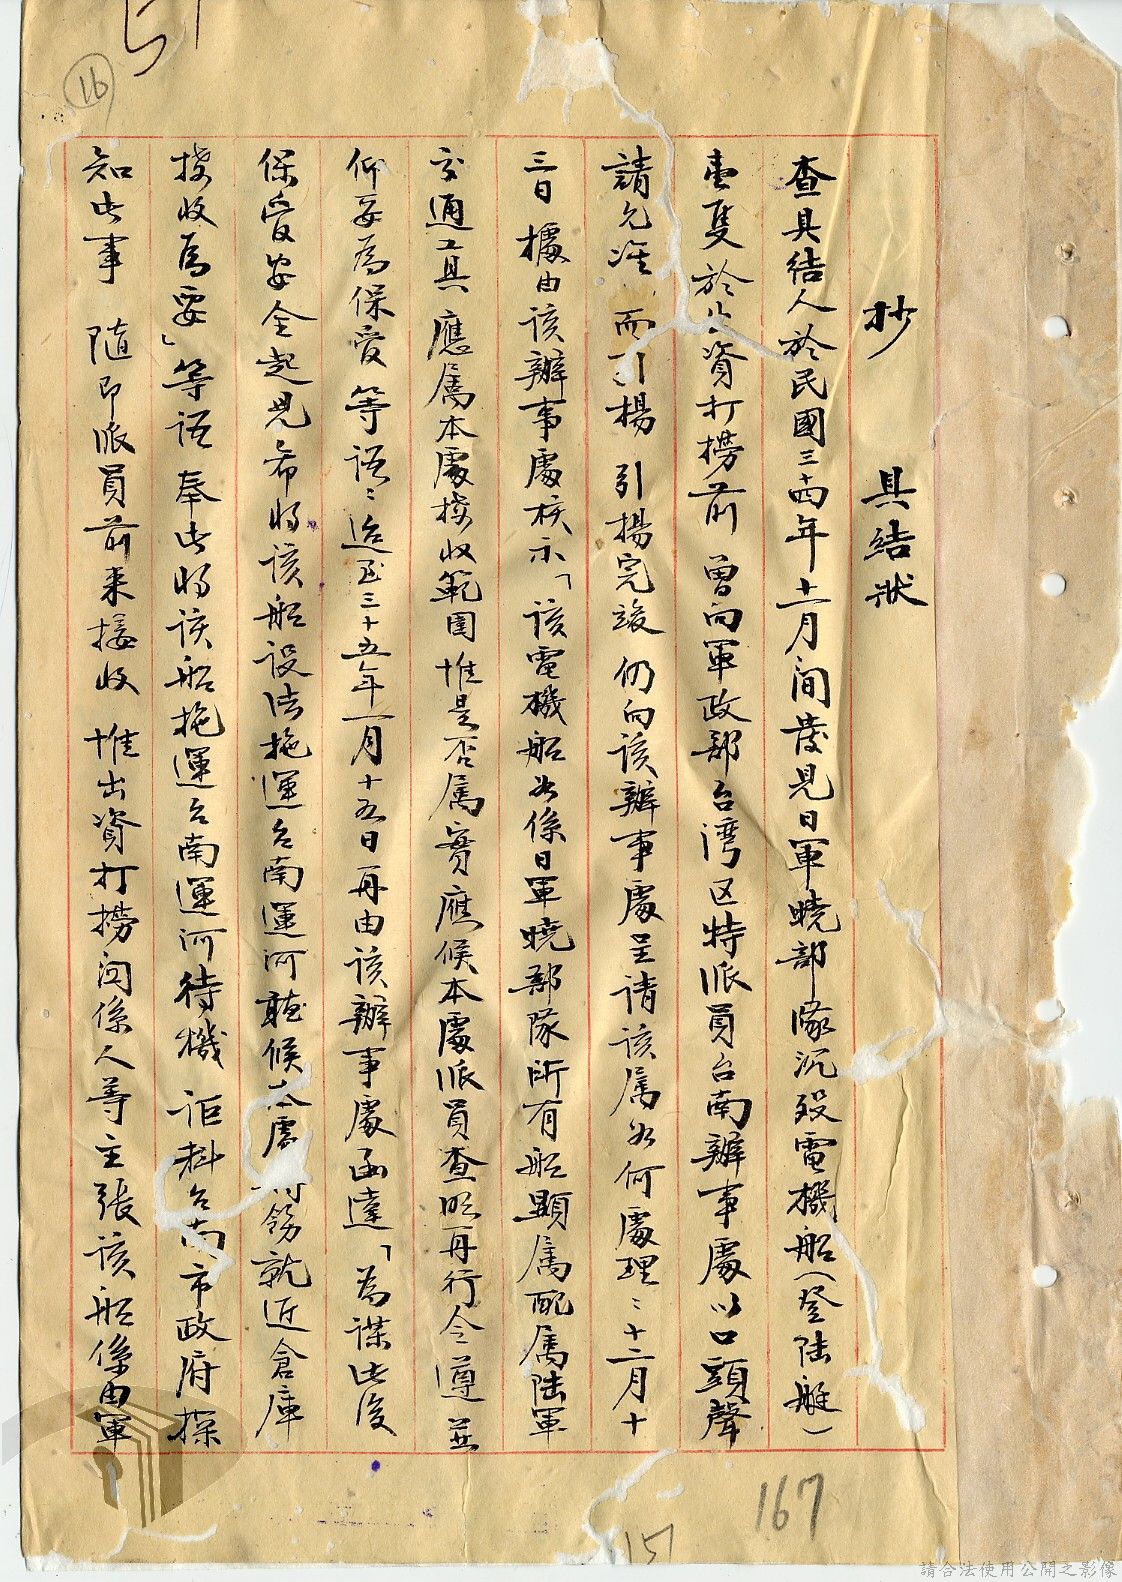 抄 具結狀
查具結人於民國三十四年十一月間發見日軍曉部隊沉沒電機船(登陸艇)
壹隻於出資打撈前曾向軍政部台湾区特派員台南辦事處以口頭聲
請允准而引楊引揚完竣仍向該辦事處呈請該属如何處理〻十二月十
三日據由該辦事處核示「該電機船如係日軍曉部隊所有船顯属配属陸軍
交通工具應属本處接收範圍惟是否属實應候本處派員查照再行令遵並
仰妥為保管等語〻迨至三十五年一月十五日再由該辦事處函達「為謀此後
保管安全起見希將該船設法拖運台南運河聽候本處飭就近倉庫
接收為要」等語奉此將該船拖運台南運河待機詎料台南市政府探
知此事隨即派員前來接收惟出資打撈関係人等主張該船係由軍
16
51
167
151
請合法使用公開之影像